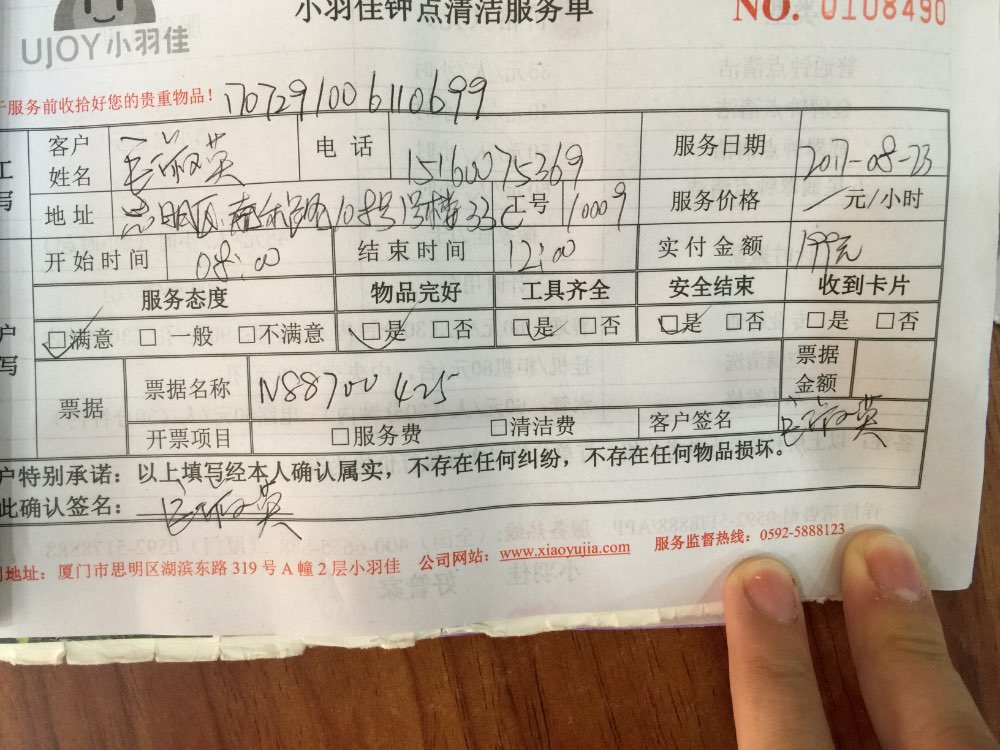 小羽佳钟点清洁服务单
NO. 0108490
UJOY小羽佳
服务前收拾好您的贵重物品！ 1707291006110699
客户姓名 英 电话 15160075369 服务日期 2017-08-23
地址 思明区 108号1号楼33C 工号 10009 服务价格 / 元/小时
开始时间 08:00 结束时间 12:00 实付金额 199元
服务态度 物品完好 工具齐全 安全结束 收到卡片
☑满意 □一般 □不满意 ☑是 □否 ☑是 □否 ☑是 □否 □是 □否
票据 票据名称 N88700425 票据金额
开票项目 □服务费 □清洁费 客户签名 英
户特别承诺：以上填写经本人确认属实，不存在任何纠纷，不存在任何物品损坏。
此确认签名： 英
地址：厦门市思明区湖滨东路319号A幢2层小羽佳 公司网站：www.xiaoyujia.com 服务监督热线：0592-5888123